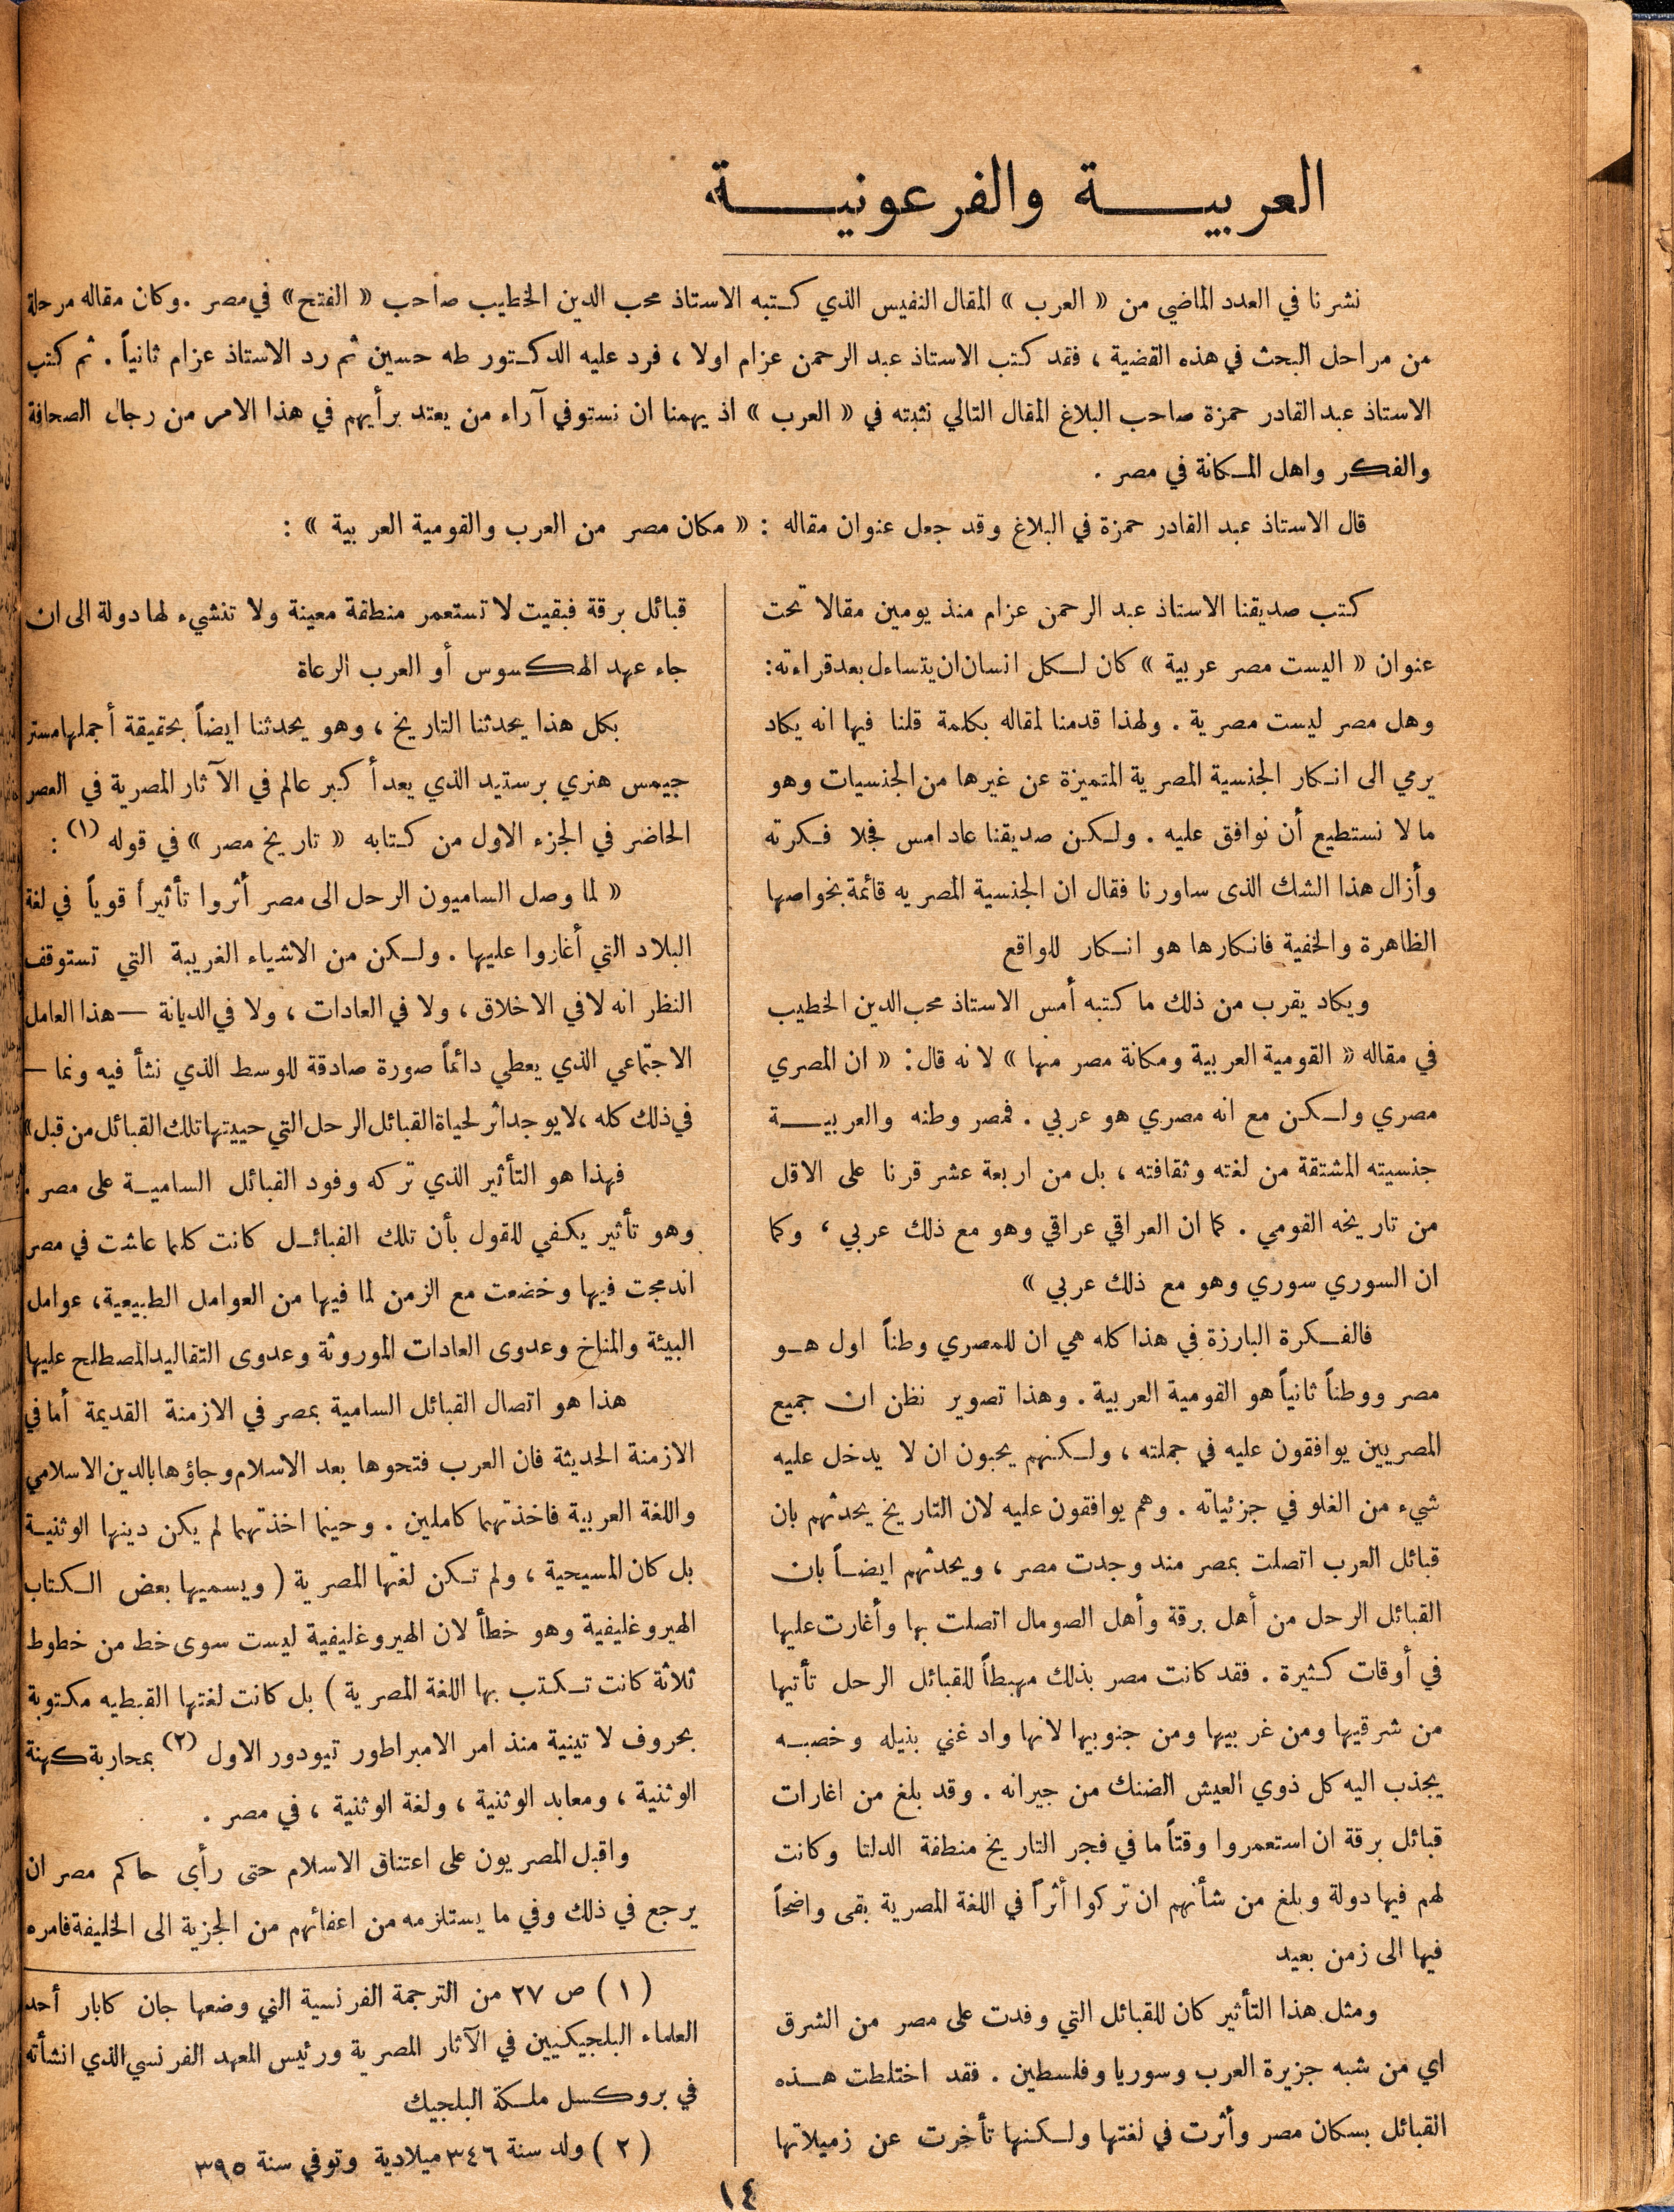 العربية والفرعونية
نشرنا في العدد الماضي من « العرب » المقال النفيس الذي كتبه الاستاذ محب الدين الخطيب صاحب « الفتح » في مصر . وكان مقاله مرحلة
من مراحل البحث في هذه القضية ، فقد كتب الاستاذ عبد الرحمن عزام اولا ، فرد عليه الدكتور طه حسين ثم رد الاستاذ عزام ثانياً . ثم كتب
الاستاذ عبد القادر حمزة صاحب البلاغ المقال التالي نثبته في « العرب » اذ يهمنا ان نستوفي آراء من يعتد برأيهم في هذا الامر من رجال الصحافة
والفكر واهل المكانة في مصر .
قال الاستاذ عبد القادر حمزة في البلاغ وقد جعل عنوان مقاله : « مكان مصر من العرب والقومية العربية » :
كتب صديقنا الاستاذ عبد الرحمن عزام منذ يومين مقالا تحت
عنوان « اليست مصر عربية » كان لكل انسان ان يتساءل بعد قراءته :
وهل مصر ليست مصرية . ولهذا قدمنا لمقاله بكلمة قلنا فيها انه يكاد
يرمي الى انكار الجنسية المصرية المتميزة عن غيرها من الجنسيات وهو
ما لا نستطيع أن نوافق عليه . ولكن صديقنا عاد امس فجلا فكرته
وأزال هذا الشك الذى ساورنا فقال ان الجنسية المصريه قائمة بخواصها
الظاهرة والخفية فانكارها هو انكار للواقع
ويكاد يقرب من ذلك ما كتبه أمس الاستاذ محب الدين الخطيب
في مقاله « القومية العربية ومكانة مصر منها » لانه قال : « ان المصري
مصري ولكن مع انه مصري هو عربي . فمصر وطنه والعربية
جنسيته المشتقة من لغته وثقافته ، بل من اربعة عشر قرنا على الاقل
من تاريخه القومي . كما ان العراقي عراقي وهو مع ذلك عربي ، وكما
ان السوري سوري وهو مع ذلك عربي »
فالفكرة البارزة في هذا كله هي ان للمصري وطناً اول هو
مصر ووطناً ثانياً هو القومية العربية . وهذا تصوير نظن ان جميع
المصريين يوافقون عليه في جملته ، ولكنهم يحبون ان لا يدخل عليه
شيء من الغلو في جزئياته . وهم يوافقون عليه لان التاريخ يحدثهم بان
قبائل العرب اتصلت بمصر منذ وجدت مصر ، ويحدثهم ايضاً بان
القبائل الرحل من أهل برقة وأهل الصومال اتصلت بها وأغارت عليها
في أوقات كثيرة . فقد كانت مصر بذلك مهبطاً للقبائل الرحل تأتيها
من شرقيها ومن غربيها ومن جنوبيها لانها واد غني بنيله وخصبه
يجذب اليه كل ذوي العيش الضنك من جيرانه . وقد بلغ من اغارات
قبائل برقة ان استعمروا وقتاً ما في فجر التاريخ منطقة الدلتا وكانت
لهم فيها دولة وبلغ من شأنهم ان تركوا أثراً في اللغة المصرية بقى واضحاً
فيها الى زمن بعيد
ومثل هذا التأثير كان للقبائل التي وفدت على مصر من الشرق
اي من شبه جزيرة العرب وسوريا وفلسطين . فقد اختلطت هذه
القبائل بسكان مصر وأثرت في لغتها ولكنها تأخرت عن زميلاتها
قبائل برقة فبقيت لا تستعمر منطقة معينة ولا تنشيء لها دولة الى ان
جاء عهد الهكسوس أو العرب الرعاة
بكل هذا يحدثنا التاريخ ، وهو يحدثنا ايضاً بحقيقة أجملها مستر
جيمس هنري برستيد الذي يعد أكبر عالم في الآثار المصرية في العصر
الحاضر في الجزء الاول من كتابه « تاريخ مصر » في قوله (١) :
« لما وصل الساميون الرحل الى مصر أثروا تأثيراً قوياً في لغة
البلاد التي أغاروا عليها . ولكن من الاشياء الغريبة التي تستوقف
النظر انه لا في الاخلاق ، ولا في العادات ، ولا في الديانة — هذا العامل
الاجتماعي الذي يعطي دائماً صورة صادقة للوسط الذي نشأ فيه ونما —
في ذلك كله ، لا يوجد اثر لحياة القبائل الرحل التي حييتها تلك القبائل من قبل »
فهذا هو التأثير الذي تركه وفود القبائل السامية على مصر .
وهو تأثير يكفي للقول بأن تلك القبائل كانت كلما عاشت في مصر
اندمجت فيها وخضعت مع الزمن لما فيها من العوامل الطبيعية ، عوامل
البيئة والمناخ وعدوى العادات الموروثة وعدوى التقاليد المصطلح عليها
هذا هو اتصال القبائل السامية بمصر في الازمنة القديمة أما في
الازمنة الحديثة فان العرب فتحوها بعد الاسلام وجاؤها بالدين الاسلامي
واللغة العربية فاخذتهما كاملين . وحينما اخذتهما لم يكن دينها الوثنية
بل كان المسيحية ، ولم تكن لغتها المصرية ( ويسميها بعض الكتاب
الهيروغليفية وهو خطأ لان الهيروغليفية ليست سوى خط من خطوط
ثلاثة كانت تكتب بها اللغة المصرية ) بل كانت لغتها القبطيه مكتوبة
بحروف لاتينية منذ امر الامبراطور تيودور الاول (٢) بمحاربة كهنة
الوثنية ، ومعابد الوثنية ، ولغة الوثنية ، في مصر .
واقبل المصريون على اعتناق الاسلام حتى رأى حاكم مصر ان
يرجع في ذلك وفي ما يستلزمه من اعفائهم من الجزية الى الخليفة فامره
( ١ ) ص ٢٧ من الترجمة الفرنسية التي وضعها جان كابار أحد
العلماء البلجيكيين في الآثار المصرية ورئيس المعهد الفرنسي الذي انشأته
في بروكسل ملكة البلجيك
( ٢ ) ولد سنة ٣٤٦ ميلادية وتوفي سنة ٣٩٥
١٤